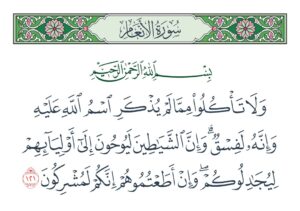 سُورَةُ الأَنْعَامِ
بِسْمِ اللَّهِ الرَّحْمَٰنِ الرَّحِيمِ
وَلَا تَأْكُلُوا مِمَّا لَمْ يُذْكَرِ اسْمُ اللَّهِ عَلَيْهِ
وَإِنَّهُ لَفِسْقٌ ۗ وَإِنَّ الشَّيَاطِينَ لَيُوحُونَ إِلَىٰ أَوْلِيَائِهِمْ
لِيُجَادِلُوكُمْ ۖ وَإِنْ أَطَعْتُمُوهُمْ إِنَّكُمْ لَمُشْرِكُونَ ١٢١